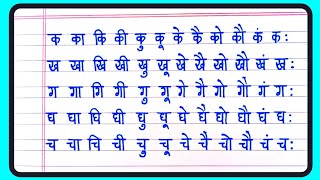 क का कि की कु कू के कै को कौ कं कः
ख खा खि खी खु खू खे खै खो खौ खं खः
ग गा गि गी गु गू गे गै गो गौ गं गः
घ घा घि घी घु घू घे घै घो घौ घं घः
च चा चि ची चु चू चे चै चो चौ चं चः